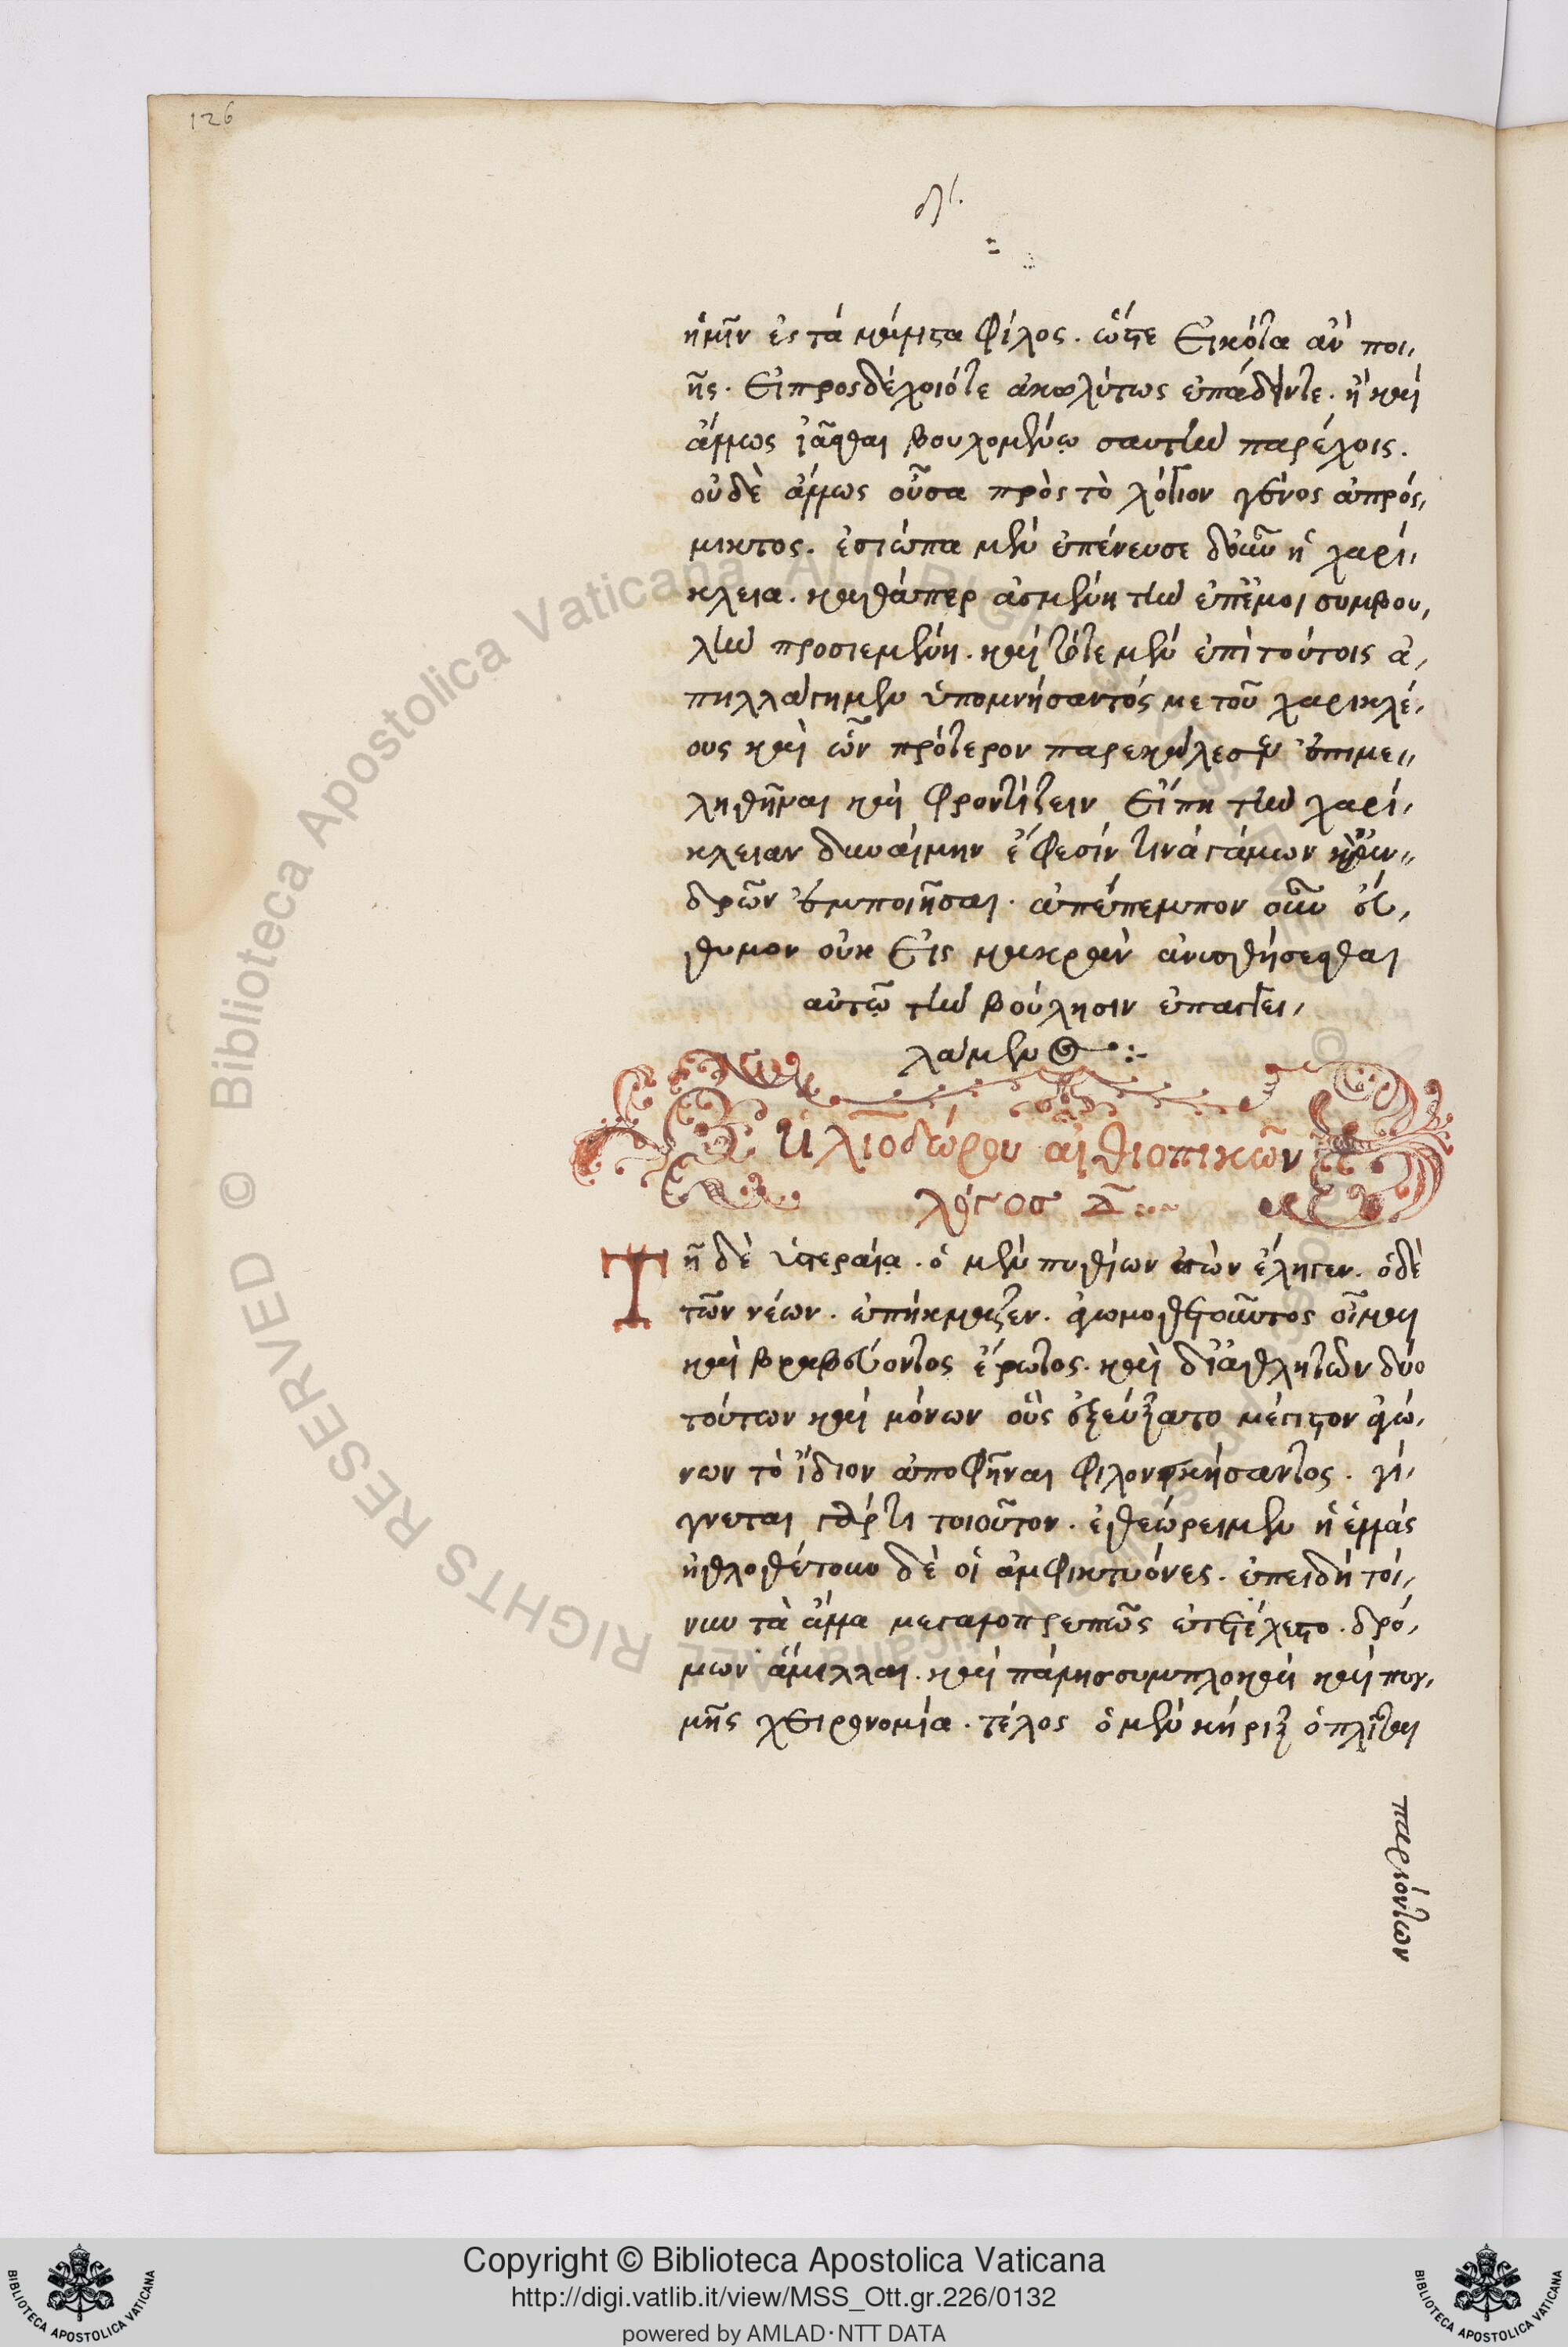 126
δ'.
ἡμῖν ἐς τὰ μάλιστα φίλος. ὥστε εἰκότα ἂν ποι,
ῇς. εἰ προσδέχοιό τε ἀκωλύτως ἐπάδοντε. ἢ καὶ
ἄλλως ἰᾶσθαι βουλομένω σαυτὴν παρέχοις.
οὐδὲ ἄλλως οὖσα πρὸς τὸ λόγιον γένος ἀπρός,
μικτος. ἐσιώπα μὲν ἐπένευσε δ' οὖν ἡ χαρί,
κλεια. καθάπερ ἀσμένη τὴν ἐπ' ἐμοὶ συμβου,
λὴν προσιεμένη. καὶ τότε μὲν ἐπὶ τούτοις ἀ,
πηλλάγημεν ὑπομνήσαντός με τοῦ χαρικλέ,
ους καὶ ὧν πρότερον παρεκάλεσεν ἐπιμε,
ληθῆναι καὶ φροντίζειν εἴ πη τὴν χαρί,
κλειαν δυναίμην ἔφεσίν τινα γάμων καὶ ἀν,
δρῶν ἐμποιῆσαι. ἀπέπεμπον οὖν εὔ,
θυμον οὐκ εἰς μακρὰν ἀνυσθήσεσθαι
αὐτῷ τὴν βούλησιν ἐπαγγει,
λάμενος :-
ἡλιοδώρου αἰθιοπικῶν
λόγοσ δ
Τῇ δὲ ὑστεραίᾳ. ὁ μὲν πυθίων ἀγὼν ἔληγεν. ὁ δὲ
τῶν νέων. ἐπήκμαζεν. ἀγωνοθετοῦντος οἶμαι
καὶ βραβεύοντος ἔρωτος. καὶ δι' ἀθλητῶν δύο
τούτων καὶ μόνων οὓς ἐζεύξατο μέγιστον ἀγώ,
νων τὸ ἴδιον ἀποφῆναι φιλονεικήσαντος. γί,
γνεται γάρ τι τοιοῦτον. ἐθεώρει μὲν ἡ ἑλλάς
ἠθλοθέτουν δὲ οἱ ἀμφικτυόνες. ἐπειδὴ τοί,
νυν τὰ ἄλλα μεγαλοπρεπῶς ἐτετέλεστο. δρό,
μων ἅμιλλαι. καὶ πάλης συμπλοκαὶ καὶ πυγ,
μῆς χειρονομία. τέλος ὁ μὲν κήρυξ ὁπλῖται
παριόντων
Copyright © Biblioteca Apostolica Vaticana
http://digi.vatlib.it/view/MSS_Ott.gr.226/0132
powered by AMLAD·NTT DATA